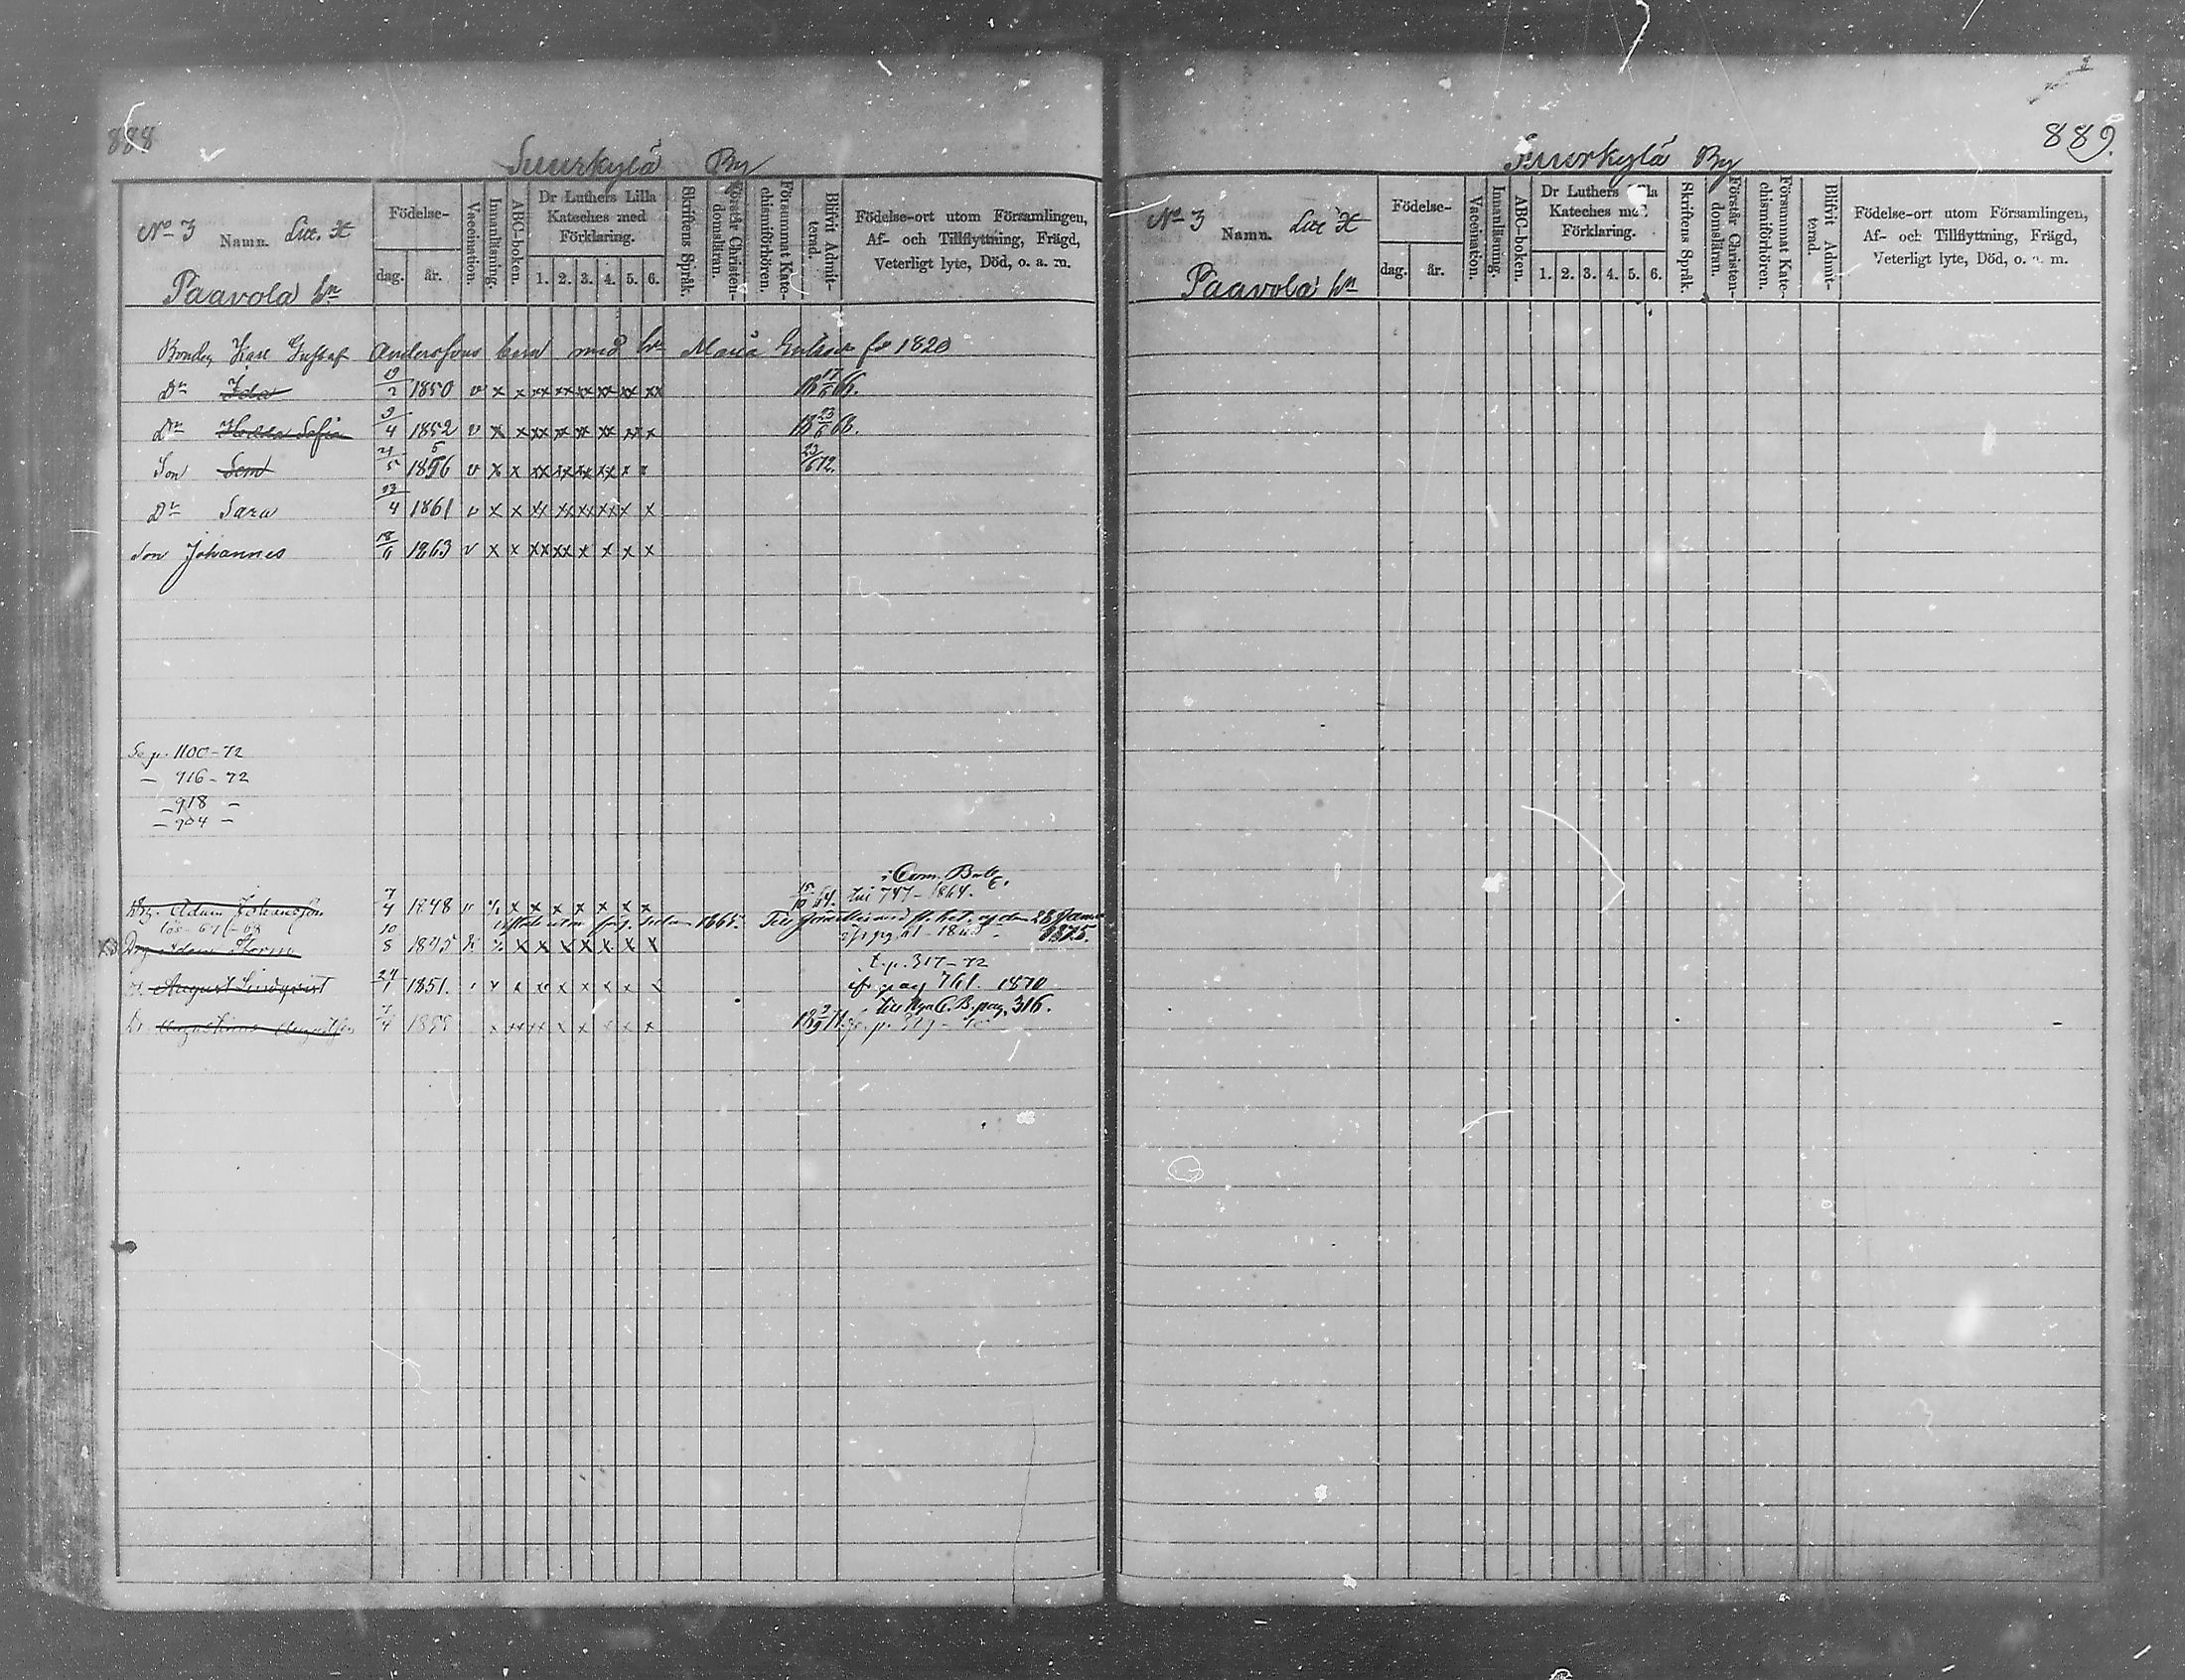 888
Suurkylä By
No 3 Namn. Litt. H
Paavola hn
Födelse-
dag. år.
Vaccination.
Innanläsning.
ABC-boken.
Dr Luthers Lilla
Kateches med
Förklaring.
1. 2. 3. 4. 5. 6.
Skriftens Språk.
Förstår Christen-
domsläran.
Försummat Kate-
chismiförhören.
Blifvit Admit-
terad.
Födelse-ort utom Församlingen,
Af- och Tillflyttning, Frägd,
Veterligt lyte, Död, o. a. m.
Gustaf Anderssons barn med Maria 1820
Dr Ida 19/2 1850 v x x xx xx xx xx xx xx 18 17/6 66.
Dr Sofia 9/4 1852 v x x xx xx xx xx xx x 18 23/6 68.
Son Sem 21/5 1856 5 v x x xx xx xx xx x x 23/6 72.
Dr Sara 23/4 1861 v x x xx xx xx xx x x
Son Johannes 18/6 1863 v x x xx xx x x x x
Se p. 1100-72
— 916-72
— 918 —
— 904 —
i Com. Bok
Adam Johansson 7/4 1848 v x x x x x x x 15/10 64. 747-1864.
utom sedan 1865. Till med den 28
1875.
Adam 10/8 1845 x x x x x x x
t. p. 317-72
August Lindqvist 24/1 1851. v x x x x x x x pag 761. 1870
till Nya C.B. pag. 316.
7/4 1855 x xx xx x x x x x 18 2/9 71.
889.
Suurkylä By
No 3 Namn. Litt H
Paavola hn
Födelse-
dag. år.
Vaccination.
Innanläsning.
ABC-boken.
Dr Luthers Lilla
Kateches med
Förklaring.
1. 2. 3. 4. 5. 6.
Skriftens Språk.
Förstår Christen-
domsläran.
Försummat Kate-
chismiförhören.
Blifvit Admit-
terad.
Födelse-ort utom Församlingen,
Af- och Tillflyttning, Frägd,
Veterligt lyte, Död, o. a. m.